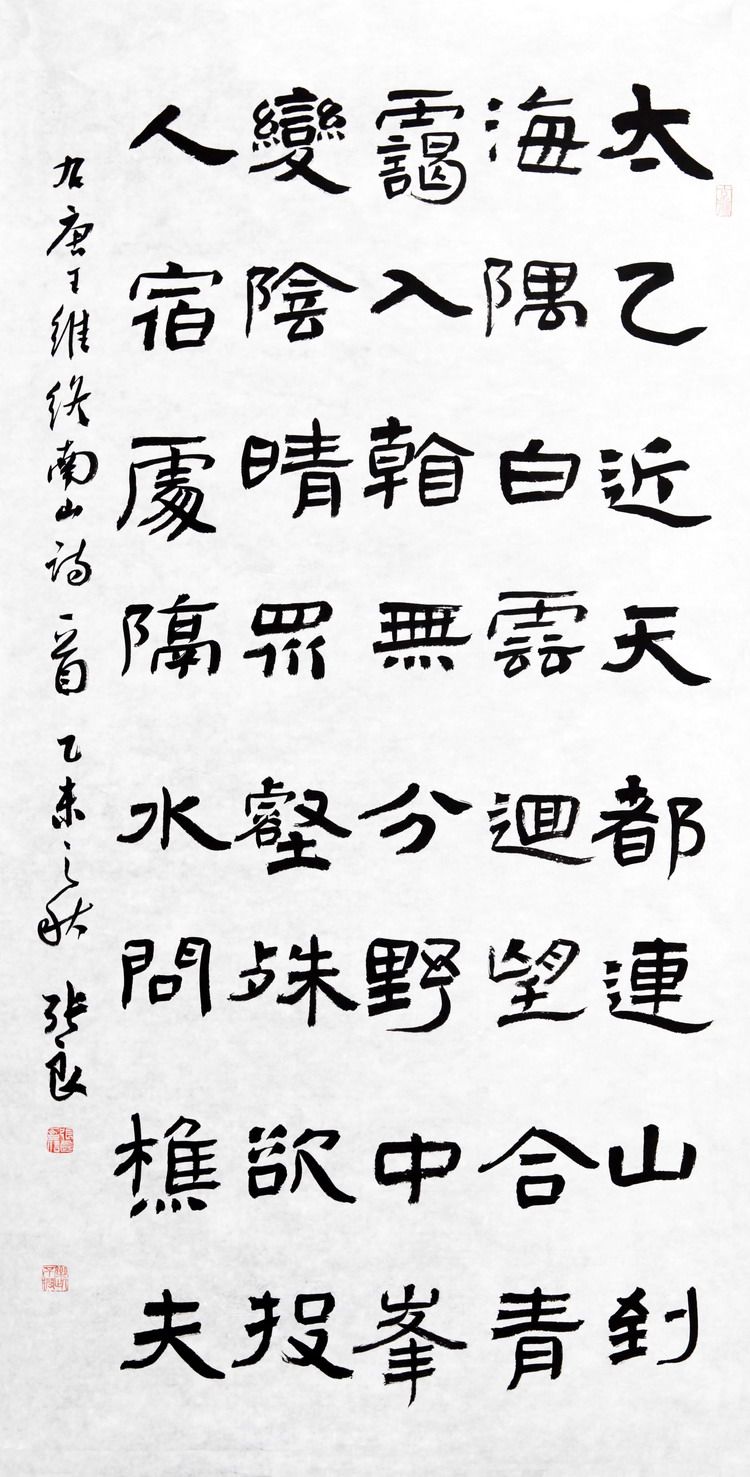 太乙近天都連山到
海隅白雲迴望合青
靄入看無分野中峯
變陰晴眾壑殊欲投
人宿處隔水問樵夫
右唐王維終南山詩一首 乙未之秋 張良